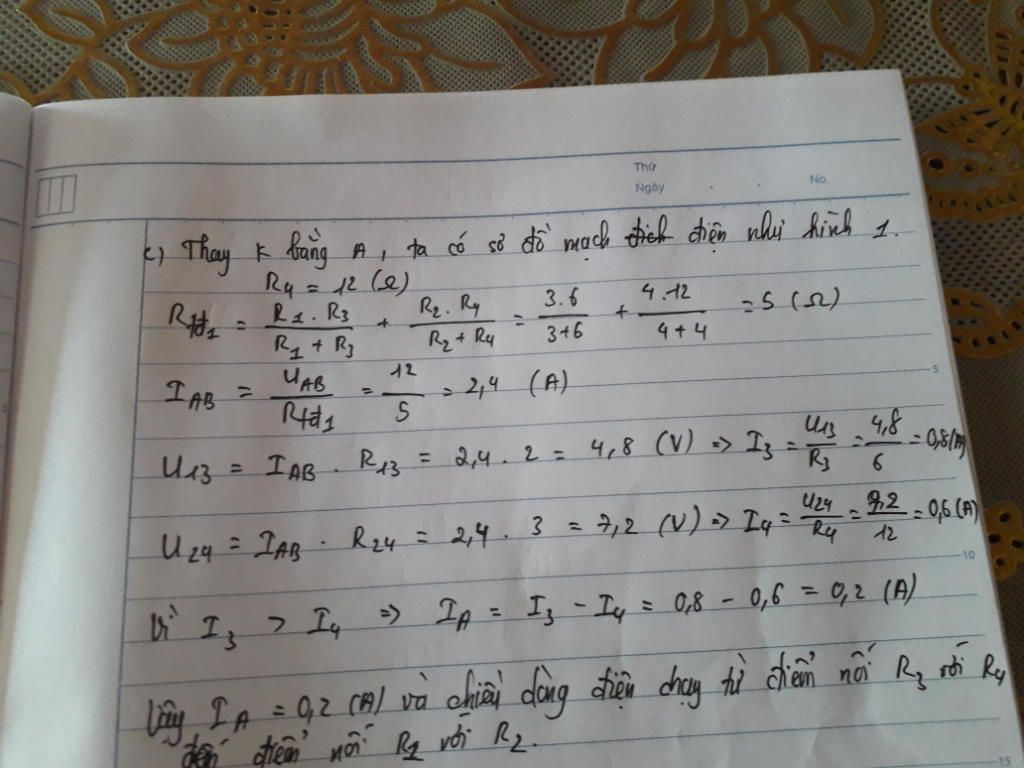 Thứ
Ngày . . No.
c) Thay K bằng A, ta có sơ đồ mạch đich điện như hình 1.
R4 = 12 (Ω)
Rtđ1 = R1 . R3 / R1 + R3 + R2 . R4 / R2 + R4 = 3.6 / 3+6 + 4.12 / 4+4 = 5 (Ω)
IAB = UAB / Rtđ1 = 12 / 5 = 2,4 (A)
5
U13 = IAB . R13 = 2,4 . 2 = 4,8 (V) => I3 = U13 / R3 = 4,8 / 6 = 0,8 (A)
U24 = IAB . R24 = 2,4 . 3 = 7,2 (V) => I4 = U24 / R4 = 7,2 / 12 = 0,6 (A)
10
Vì I3 > I4 => IA = I3 - I4 = 0,8 - 0,6 = 0,2 (A)
Vậy IA = 0,2 (A) và chiều dòng điện chạy từ điểm nối R3 với R4
đến điểm nối R1 với R2.
15